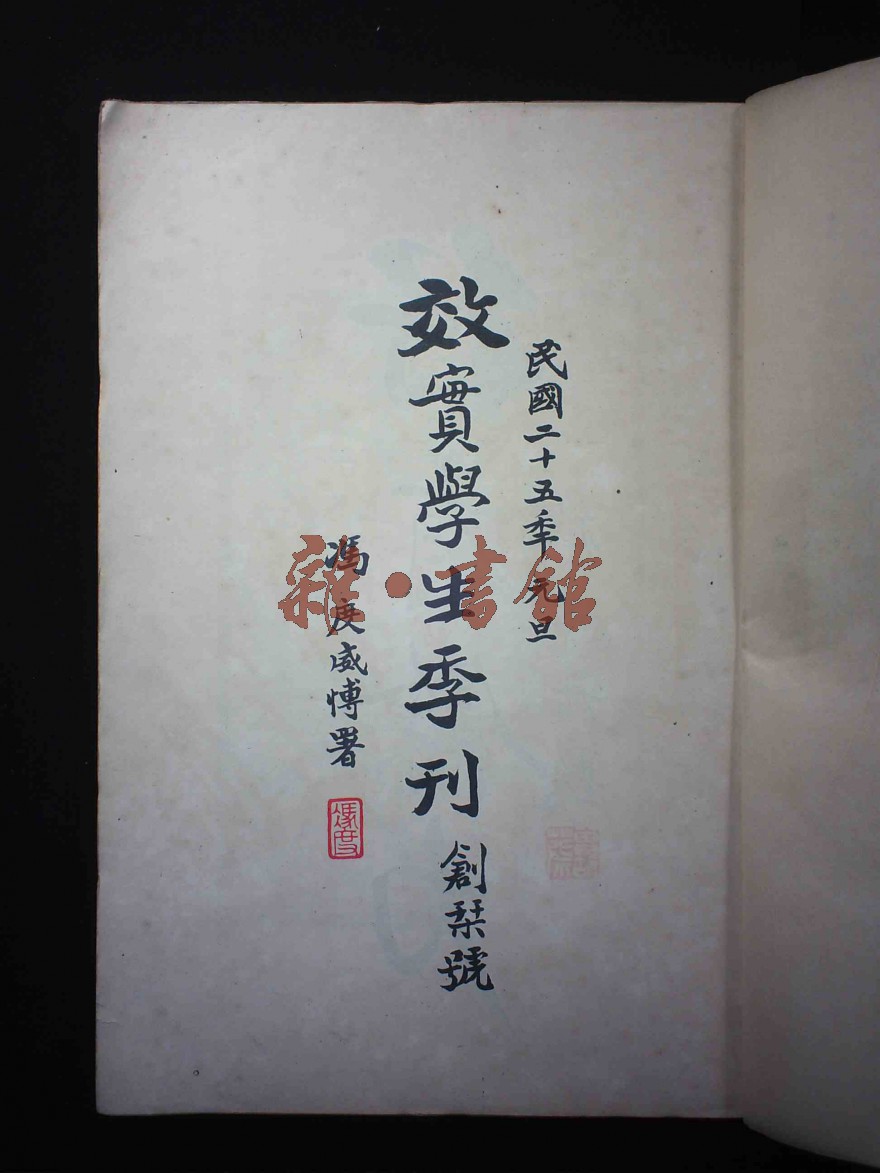 民國二十五季元旦
效實學生季刊
創栞號
馮度威愽署
雜·書館